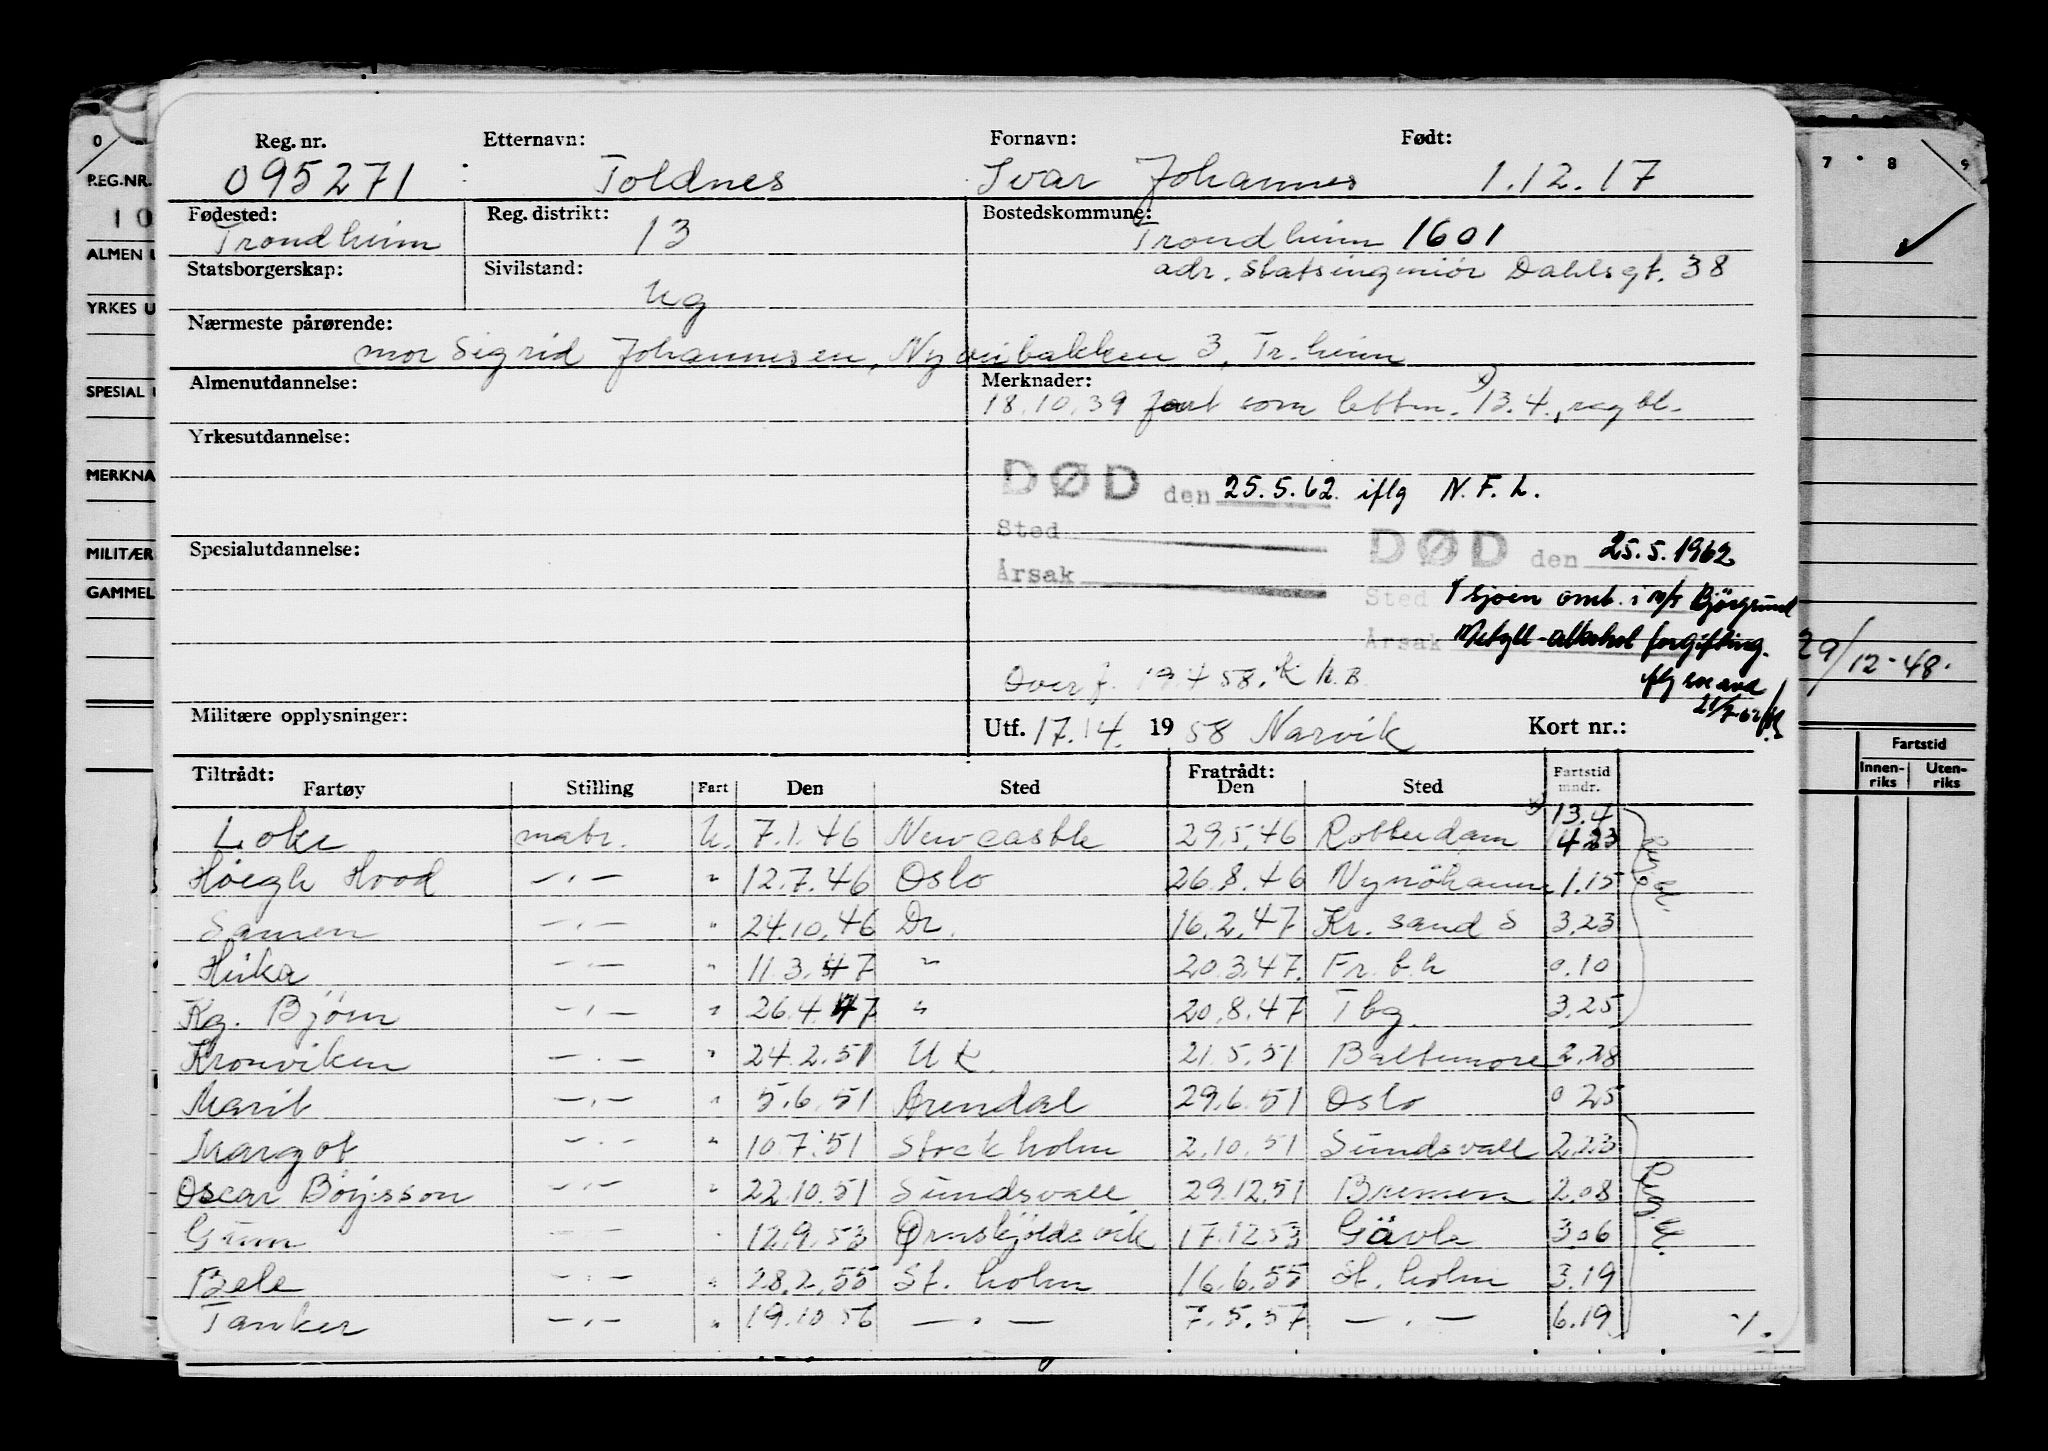 Reg. nr. Etternavn: Fornavn: Født:
095271 Toldnes Ivar Johannes 1.12.17
Fødested: Reg. distrikt: Bostedskommune:
Trondheim 13 Trondheim 1601
Statsborgerskap: Sivilstand: adr. Statsingeniør Dahlsgt. 38
Ug
Nærmeste pårørende:
mor Sigrid Johannesen, Nyveibakken 3, Tr.heim
Almenutdannelse: Merknader:
18.10.39 Fart som lettm. x) 13.4, reg bl.
Yrkesutdannelse:
DØD den 25.5.62. iflg N.F.L.
Sted
Årsak
Spesialutdannelse:
DØD den 25.5.1962
Sted I sjøen omb. i m/s Bjørgsund
Årsak Metyll-alkohol forgiftning.
Overf. 19.4 58. K
21/7-62
Militære opplysninger: Utf. 17.4. 1958 Narvik Kort nr.:
Tiltrådt: Fratrådt:
Fartøy Stilling Fart Den Sted Den Sted Fartstid mndr.
x) 13.4
Loke matr. U. 7.1.46 Newcastle 29.5.46 Rotterdam 4 23
Høegh Hood —.— " 12.7.46 Oslo 26.8.46 Nynöhamn 1.15
Samen —.— " 24.10.46 Dr. 16.2.47 Kr. sand S 3.23
Heika —.— " 11.3.47 " 20.3.47. Fr.b.h 0.10
Kg. Bjørn —.— " 26.4.47 " 20.8.47 Tbg. 3.25
Kronviken —.— " 24.2.51 U k. 21.5.51 Baltimore 2.28
Marit —.— " 5.6.51 Arendal 29.6.51 Oslo 0 25
Margot —.— " 10.7.51 Stockholm 2.10.51 Sundsvall 2.23
Oscar Börjesson —.— " 22.10.51 Sundsvall 29.12.51 Bremen 2.08
Gunn —.— " 12.9.53 Ørnskjöldsvik 17.12.53 Gävle 3.06
Bele —.— " 28.2.55 St. holm 16.6.55 St. holm 3.19
Tanker —.— " 19.10 56 —.— 7.5.57 —.— 6.19
Reg. bl.
Reg. bl.
./.
0
REG.NR.
10
ALMEN U
YRKES U
SPESIAL
MERKNA
MILITÆR
GAMMEL
7 8 9
29/12-48.
Fartstid
Innen-riks Uten-riks